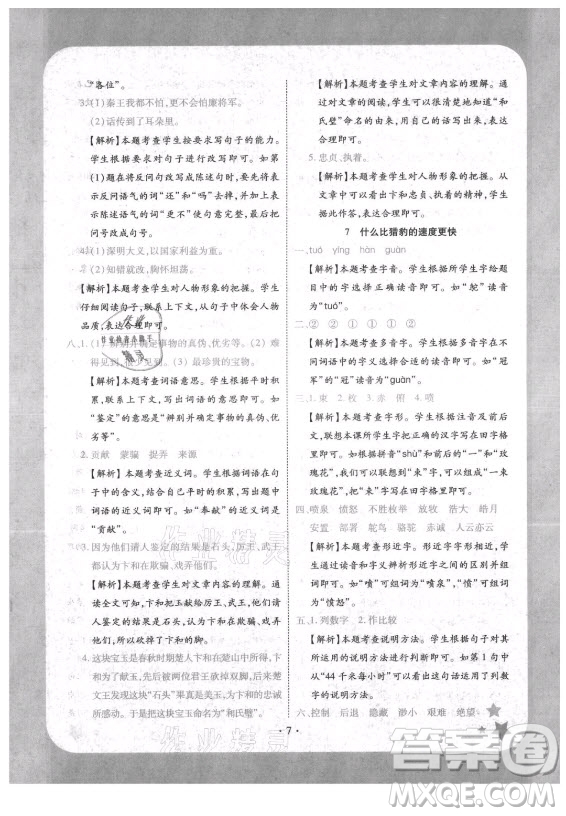 “客位”。
3.(1)秦王我都不怕,更不会怕廉将军。
(2)话传到了耳朵里。
【解析】本题考查学生按要求写句子的能力。
学生根据要求对句子进行改写即可。如第(1)
题,在将反问句改写成陈述句时,先把表示反
问语气的词“还”和“吗”去掉,并在句子中加上
表示陈述语气的词“更不”使句意完整,最后把
问号改成句号。
4.(1)深明大义,以国家利益为重。
(2)知错就改,胸怀坦荡。
【解析】本题考查学生对人物形象的把握。学生
仔细阅读句子,联系上下文,从句子中体会人物
品质,表达合理即可。
得见到,不易见到。(3)最珍贵的宝物。
【解析】本题考查词语意思。学生根据平时积
累,联系上下文理解词语意思,作答即可。如
“鉴定”的意思是“辨别并确定事物的真伪、优
劣等”。
2.贡献 蒙骗 捉弄 来源
【解析】本题考查近义词。学生根据词语在句
子中的意思,联系上下文,写出意思相近或相
同的词语即可。如“奉献”的近义词是
“贡献”。
3.因为他们请人鉴定的结果是石头,厉王、武王
都认为卞和在欺骗、戏弄他们。
【解析】本题考查学生对文章内容的理解。通
读全文可知,卞和把玉献给厉王、武王,他们请
人鉴定的结果是石头,都认为卞和在欺骗、戏
弄他们,所以砍掉了卞和的脚。
4.这块宝玉是春秋时期楚人卞和在楚山中所得,
卞和因献宝先后被两位君王砍掉双脚,后来楚
文王发现了“石头”里的美玉,为表彰卞和的忠诚
与执着,将这块宝玉命名为“和氏璧”。
【解析】本题考查学生对文章内容的理解。通
过对文章的阅读,学生可以很清楚地找到“和
氏璧”命名的由来,用自己的话概括出来,表达
合理即可。
5.忠贞、执着。
【解析】本题考查学生对人物形象的把握。从
文章中可以看出卞和忠贞、执着的精神,学生
作答合理即可。
7 什么比猎豹的速度更快
一、tuó yīng hàn guàn
【解析】本题考查字音。学生根据所给字给字
注音,注意声调的标注位置即可。如“鸵”读
音为“tuó”。
二、② ① ② ① ②
【解析】本题考查多音字。学生根据多音字在
不同词语中的字义选择合适的读音即可。如“冠军”
的“冠”读音为“guàn”。
三、1.束 2.枚 3.赤 俯 4.喷
【解析】本题考查字形。学生根据注音及句意,
联系上下文,把正确的汉字书写在田字格里即
可。如第1句,根据拼音“shù”和前后的“一”和“玫
瑰花”,我们联想到“束”字,可以组成“一束
玫瑰花”,所以在田字格里填写“束”。
四、喷泉 愤怒 不胜枚举 放牧 浩大 皓月
安置 部署 鸵鸟 骆驼 赤诚 人云亦云
【解析】本题考查形近字。学生观察形近字
之间的区别并分别组词即可。如“喷”和
“愤”字形相近,“喷”可组词为“喷泉”,“愤”可组
词为“愤怒”。
五、1.列数字 2.作比较
【解析】本题考查说明方法。学生根据句中对其
所用的说明方法进行判断即可。如第1句中
“44千米每小时”列举了具体的数字,所以
可以判断出运用了列数字的说明方法。
六、控制 后退 隐藏 渺小 艰难 绝望
·7·
答案圈
MXQE.COM